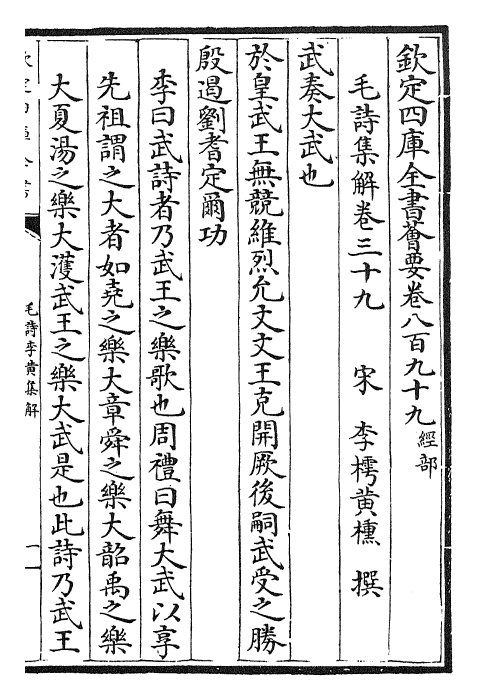 欽定四庫全書薈要卷八百九十九 經部
毛詩集解卷三十九 宋 李樗黃櫄 撰
武奏大武也
於皇武王無競維烈允文文王克開厥後嗣武受之勝
殷遏劉耆定爾功
李曰武詩者乃武王之樂歌也周禮曰舞大武以享
先祖謂之大者如堯之樂大章舜之樂大韶禹之樂
大夏湯之樂大濩武王之樂大武是也此詩乃武王
毛詩李黃集解
一